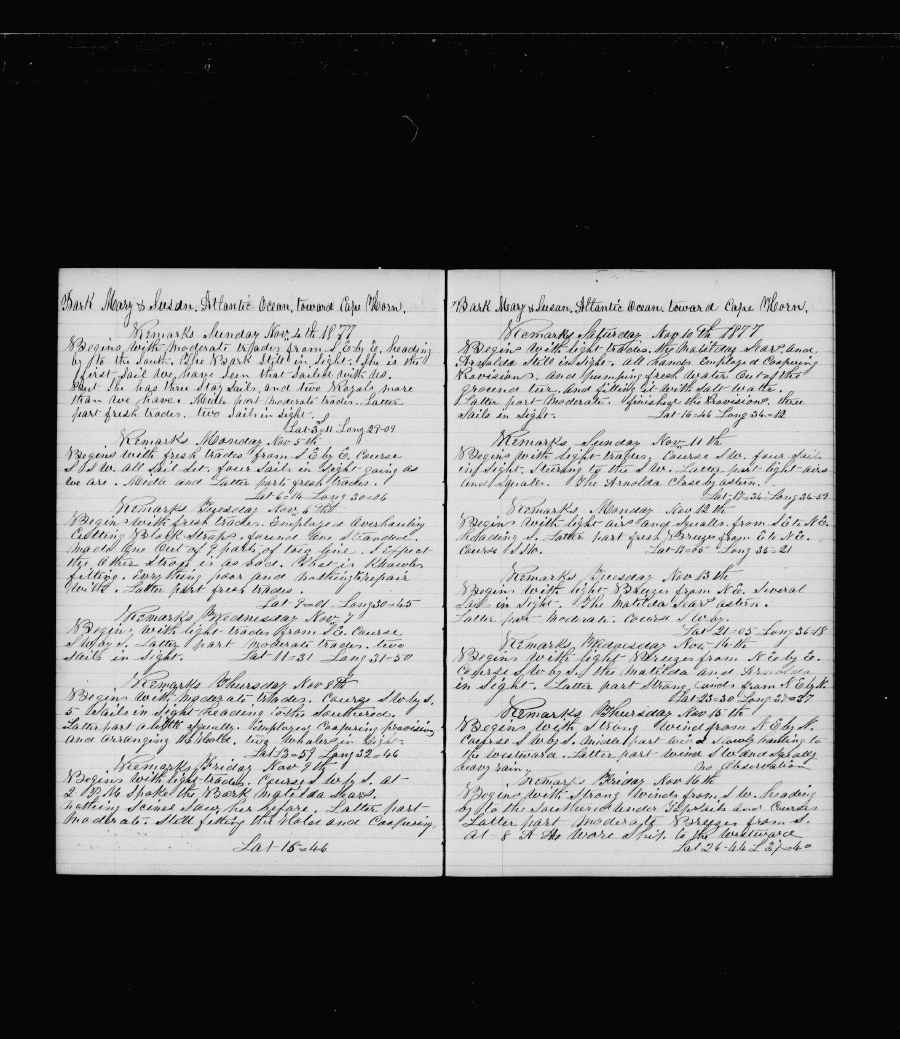 Bark Mary & Susan, Atlantic Ocean, toward Cape Horn,
Remarks Sunday Nov. 4th 1877
Begins with moderate trades from S E by E. heading
by to the South. The Bark Still in Sight. She is the
first Sail we have seen that Sailed with us.
But She has three Stay Sails, and two Royals more
than we have. Middle part moderate trades. Latter
part fresh trades. two Sail in Sight.
Lat 3=11 Long 29-09
Remarks Monday Nov 5th
Begins with fresh trades from S E by E. Course
S S W. all Sail Set. four Sails in Sight going as
we are. Middle and Latter parts fresh trades.
Lat 6=14 Long 30=06
Remarks Tuesday Nov 6th
Begins with fresh trades. Employed Overhauling
Cutting Block Straps. found One Stranded.
made One Out of 9 parts of tow line. I Expect
the Other Strap is as bad. What is Whaling
fitting. Every thing poor and nothing to repair
with. Latter part fresh trades.
Lat 9=01 Long 30=45
Remarks Wednesday Nov 7
Begins with light trades from S E. Course
S W by S. Latter part moderate trades. two
Sails in Sight. Lat 11=31 Long 31-50
Remarks Thursday Nov 8th
Begins with moderate trades. Course S W by S.
5 Sails in Sight heading to the Southered.
Latter part a little Squally. Employed Coopering provisions
and arranging the Hold. two Whalers in Sight.
Lat 13=59 Long 32=46
Remarks Friday Nov 9th
Begins with light trades. Course S W by S. at
2 P. M. Spoke the Bark Matilda Sears.
nothing Scince Saw her before. Latter part
moderate. Still fitting the Hold and Coopering.
Lat 15=46
Bark Mary & Susan, Atlantic Ocean, toward Cape Horn,
Remarks Saturday Nov 10th 1877
Begins with light trades. the Matilda Sears, and
Arnolda Still in Sight. All hands Employed Coopering
Provisions. and pumping fresh water Out of the
ground tier, and filling it with Salt water.
Latter part moderate. finished the Provisions. three
Sails in Sight. Lat 16=46 Long 34=12
Remarks Sunday Nov 11th
Begins with light trades, Course S W. four Sails
in Sight. Stearing to the S W. Latter part light airs
and Squalls. The Arnolda Close by astern.
Lat 17=34 Long 34-59
Remarks Monday Nov 12th
Begins with light airs and Squalls from S E to N E.
Heading S. Latter part fresh Breezes from E to N E.
Course S S W. Long 35-21
Remarks Tuesday Nov 13th
Begins with light Breezes from N E. Several
Sails in Sight. The Matilda Sears astern.
Latter part moderate. Course S W by.
Lat 21-05 Long 36-18
Remarks, Wednesday Nov 14th
Begins with light Breezes from N E by E.
Course S W by S. the Matilda and Arnolda
in Sight. Latter part Strong winds from N E by N.
Lat 23=30 Long 37=37
Remarks Thursday Nov 15th
Begins with Strong Wind from N E by N.
Course S W by S. Middle part wind Slowly hauling to
the westward. Latter part wind S W and Squally
heavy rain. no Observation
Remarks Friday Nov 16th
Begins with Strong Winds from S. W. heading
by to the Southered under Top Sails and Courses
Latter part moderate Breezes from S.
At 8 A M Wore Ship to the westward
Lat 26-44 L 37=40